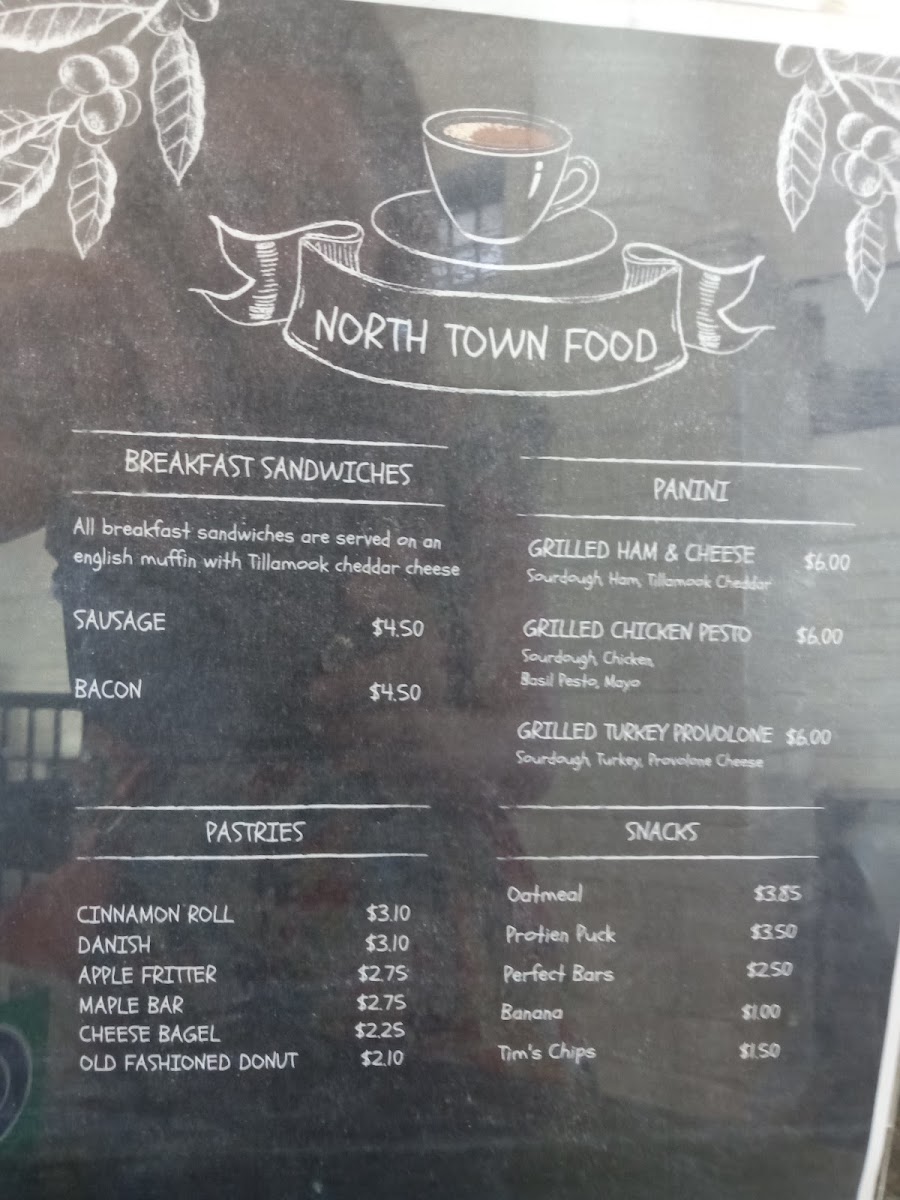 NORTH TOWN FOOD
BREAKFAST SANDWICHES
All breakfast sandwiches are served on an
english muffin with Tillamook cheddar cheese
SAUSAGE $4.50
BACON $4.50
PANINI
GRILLED HAM & CHEESE $6.00
Sourdough, Ham, Tillamook Cheddar
GRILLED CHICKEN PESTO $6.00
Sourdough, Chicken,
Basil Pesto, Mayo
GRILLED TURKEY PROVOLONE $6.00
Sourdough, Turkey, Provolone Cheese
PASTRIES
CINNAMON ROLL $3.10
DANISH $3.10
APPLE FRITTER $2.75
MAPLE BAR $2.75
CHEESE BAGEL $2.25
OLD FASHIONED DONUT $2.10
SNACKS
Oatmeal $3.85
Protien Puck $3.50
Perfect Bars $2.50
Banana $1.00
Tim's Chips $1.50